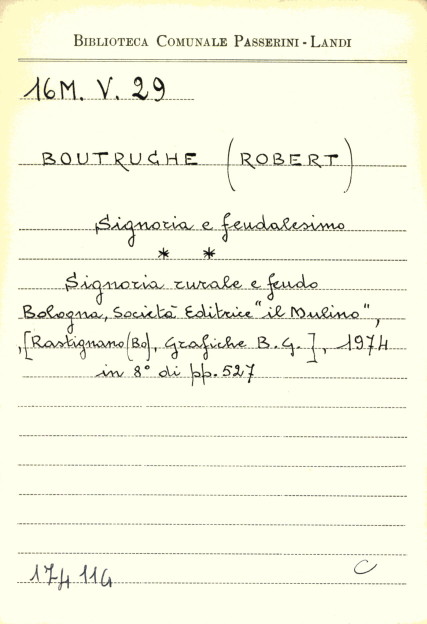 BIBLIOTECA COMUNALE PASSERINI - LANDI
16M. V. 29
BOUTRUCHE (ROBERT)
Signoria e feudalesimo
* *
Signoria rurale e feudo
Bologna, Società Editrice "il Mulino",
[Rastignano (Bo), Grafiche B. G.], 1974
in 8° di pp. 527
174114
C